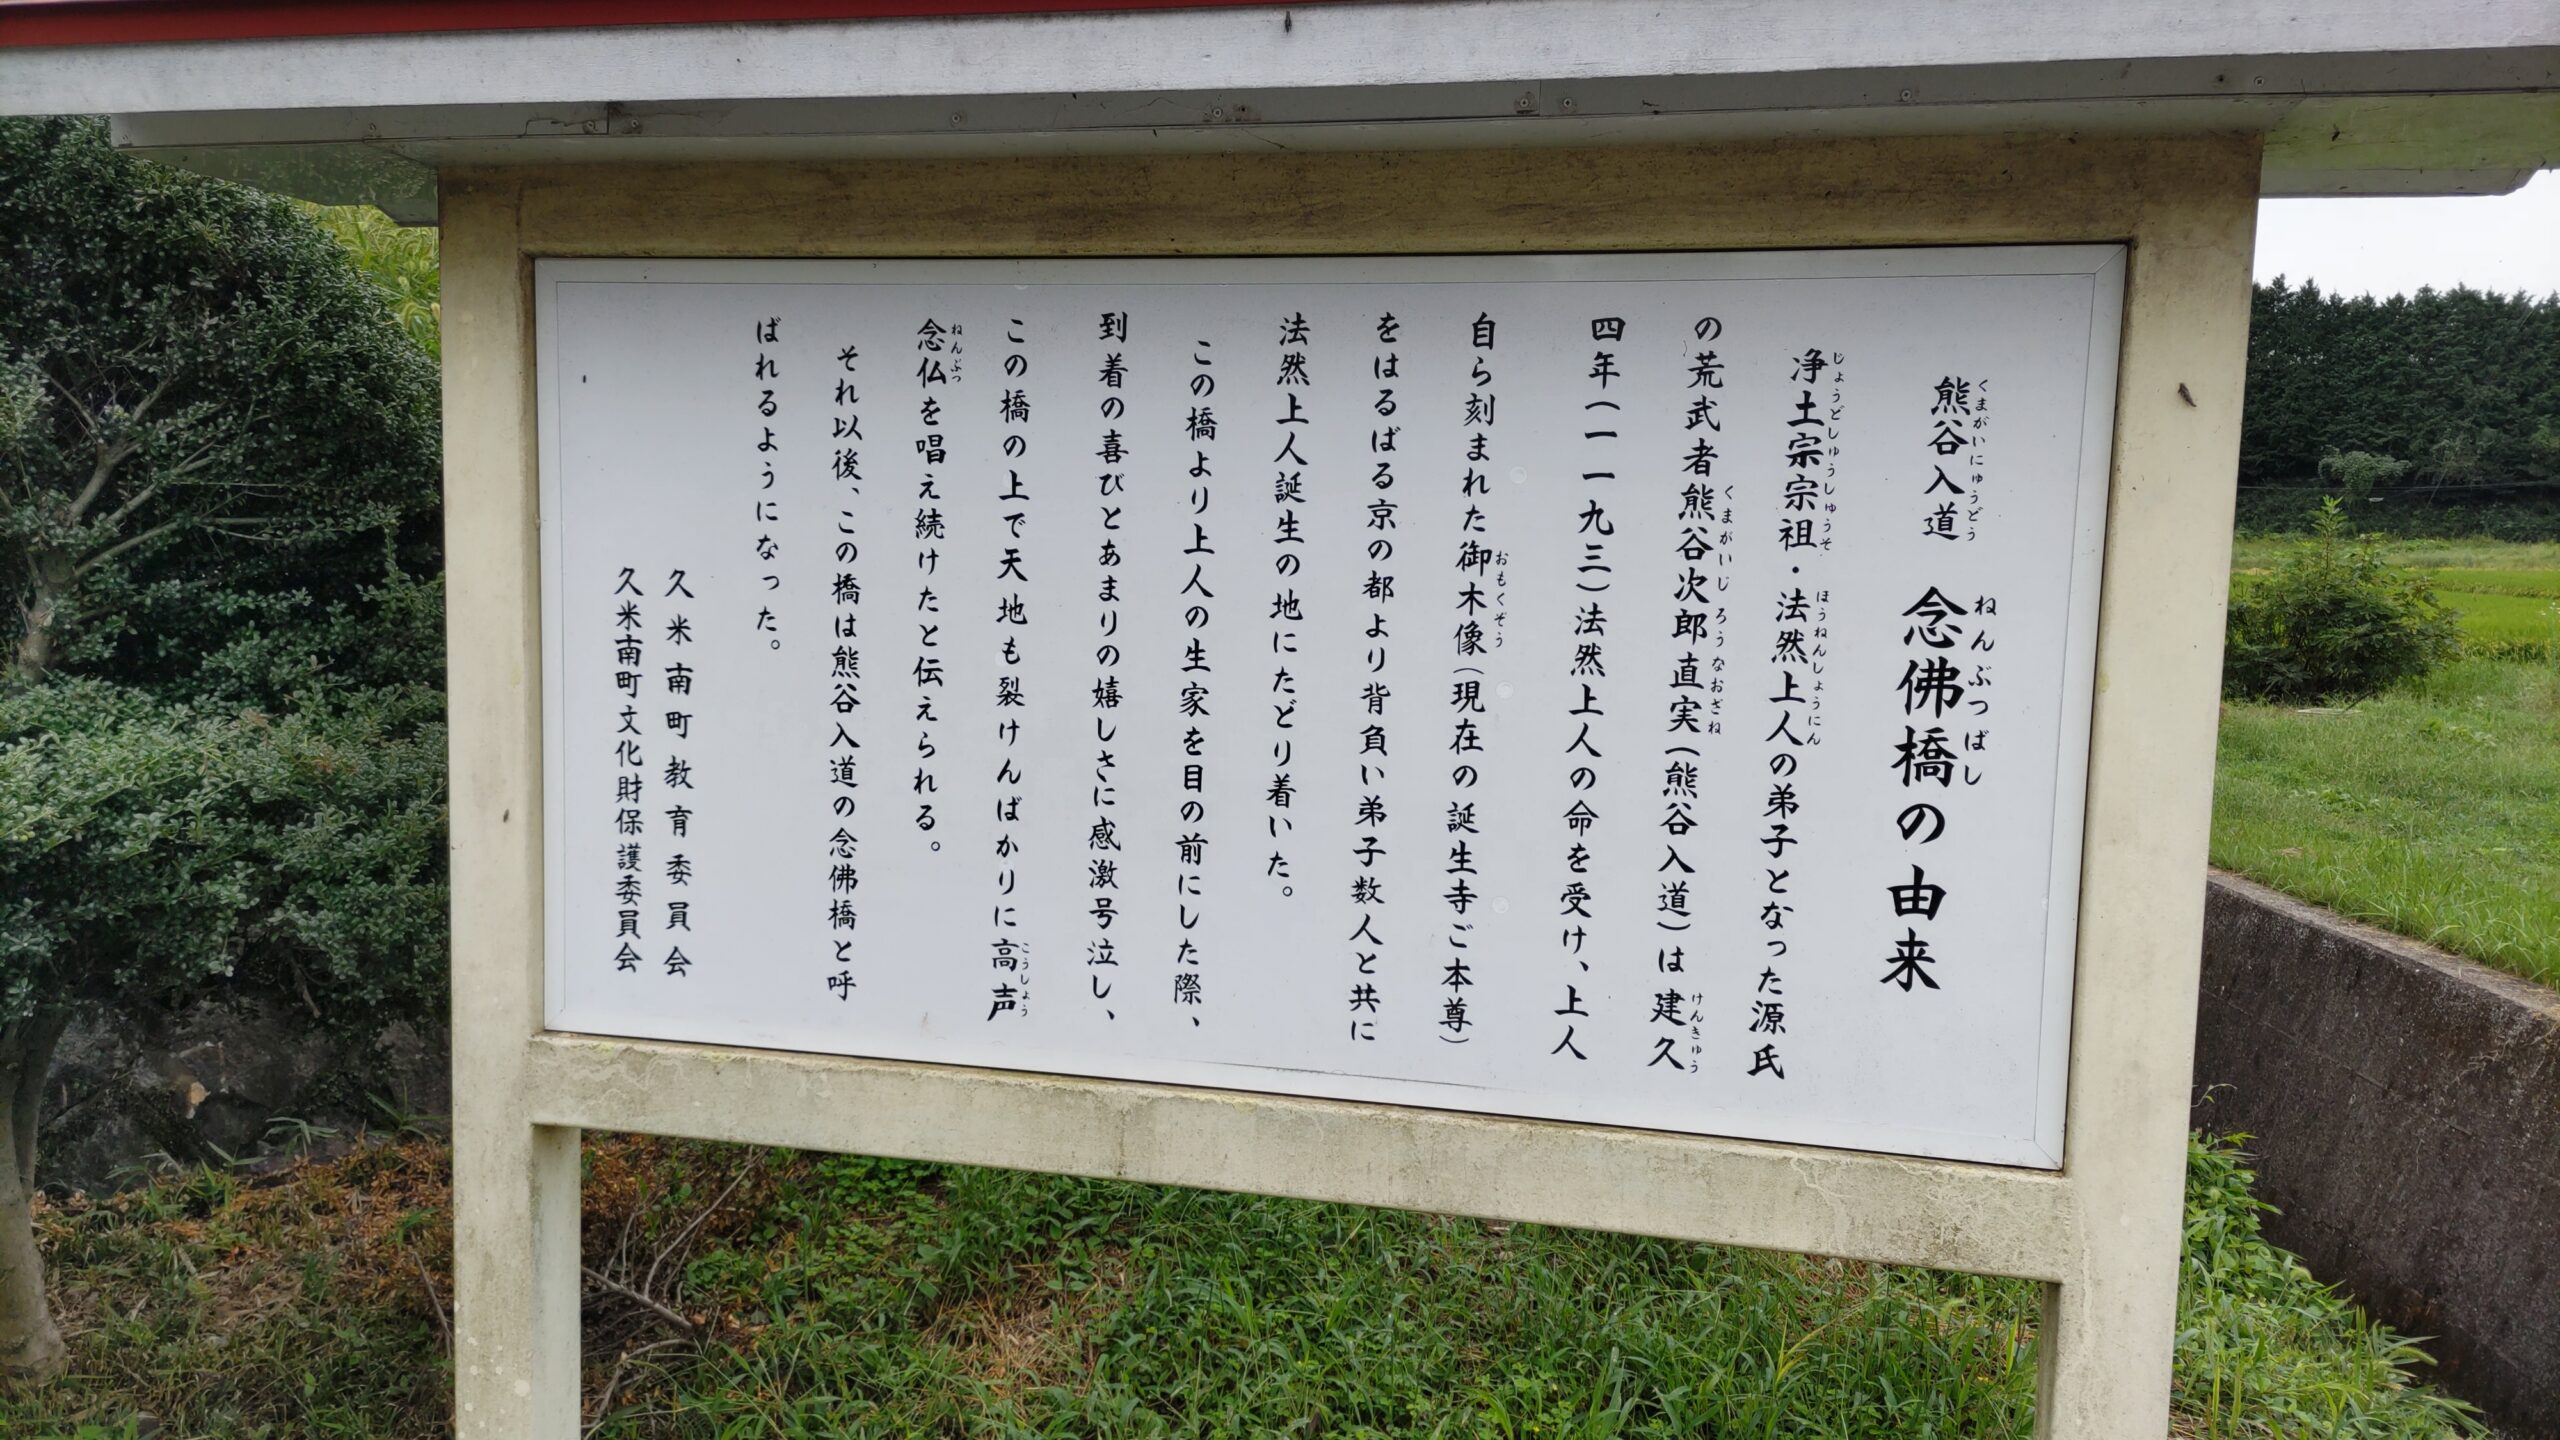 熊谷入道　念佛橋の由来
浄土宗宗祖・法然上人の弟子となった源氏
の荒武者熊谷次郎直実(熊谷入道)は建久
四年(一一九三)法然上人の命を受け、上人
自ら刻まれた御木像(現在の誕生寺ご本尊)
をはるばる京の都より背負い弟子数人と共に
法然上人誕生の地にたどり着いた。
この橋より上人の生家を目の前にした際、
到着の喜びとあまりの嬉しさに感激号泣し、
この橋の上で天地も裂けんばかりに高声
念仏を唱え続けたと伝えられる。
それ以後、この橋は熊谷入道の念佛橋と呼
ばれるようになった。
久米南町教育委員会
久米南町文化財保護委員会